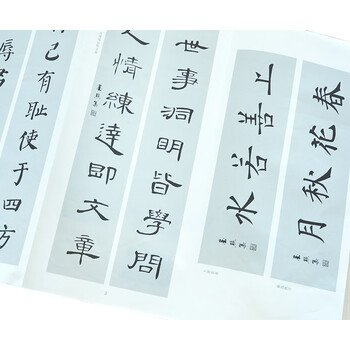 春花秋月
上善若水
世事洞明皆學問
人情練達即文章
己有耻使于四方
辱